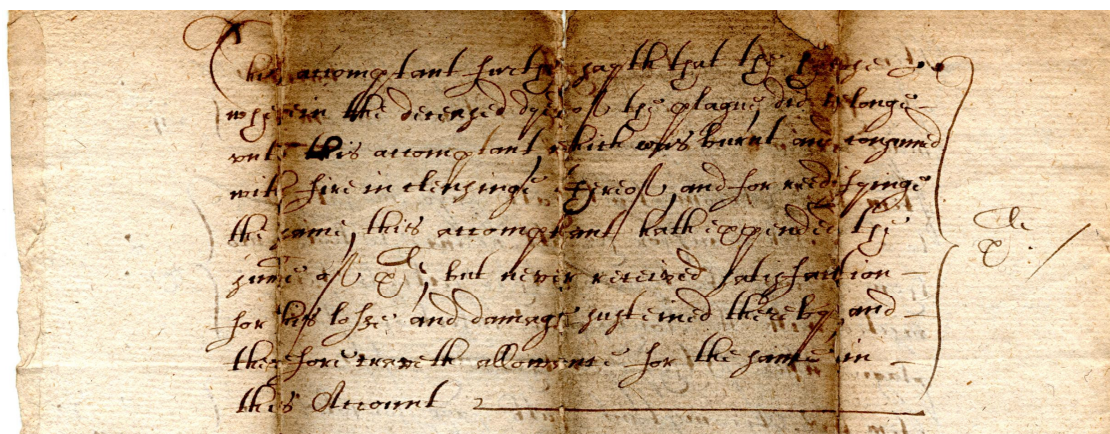 This accomptant further sayth that the howse
wherein the deceased dyed of the plague did belonge
unto this accomptant, which was burnt and consumed
with fire in clensinge thereof, and for reedifyinge
the same this accomptant hath expended the
summe of xˡⁱ, but never received satisfaction
for his losse and damage susteined thereby, and
therefore craveth allowance for the same in
this Account
xˡⁱ